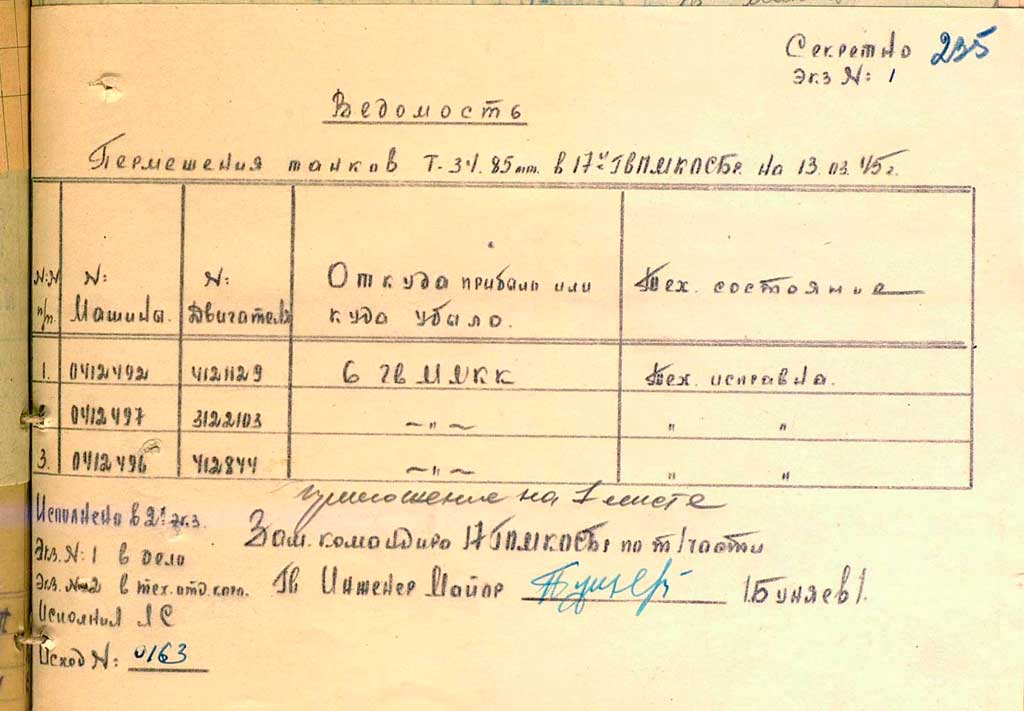 Секретно 235
Экз №: 1
Ведомость
Пермешения танков Т-34. 85мм. в 17й ГвПМКПСБр на 13.03.45г.
№:№ п/п.
№: Машины.
№: Двигателя
Откуда прибыло или куда убыло.
Тех. состояние
1. 0412492 4121129 6 Гв ММКК Тех. исправна.
2 0412497 3122103 ~ " ~ " "
3. 0412496 412844 ~ " ~ " "
приложение на 1 листе
Исполнено в 2х экз.
Экз. №: 1 в дело
Экз. №2 в тех. отд. корп.
Исполнил ЛС
Исход №: 0163
Зам. командира 17 ГПМКПСБр по т/части
Гв Инженер Майор /Буняев/.